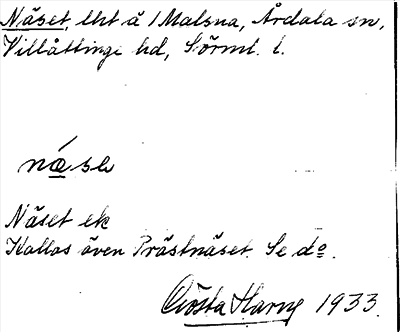 Näset, lht å 1 Malsna, Årdala sn,
Villåttinge hd, Sörml. l.
nǽse
Näset ek
Kallas även Prästnäset. Se do.
Gösta Harng 1933.